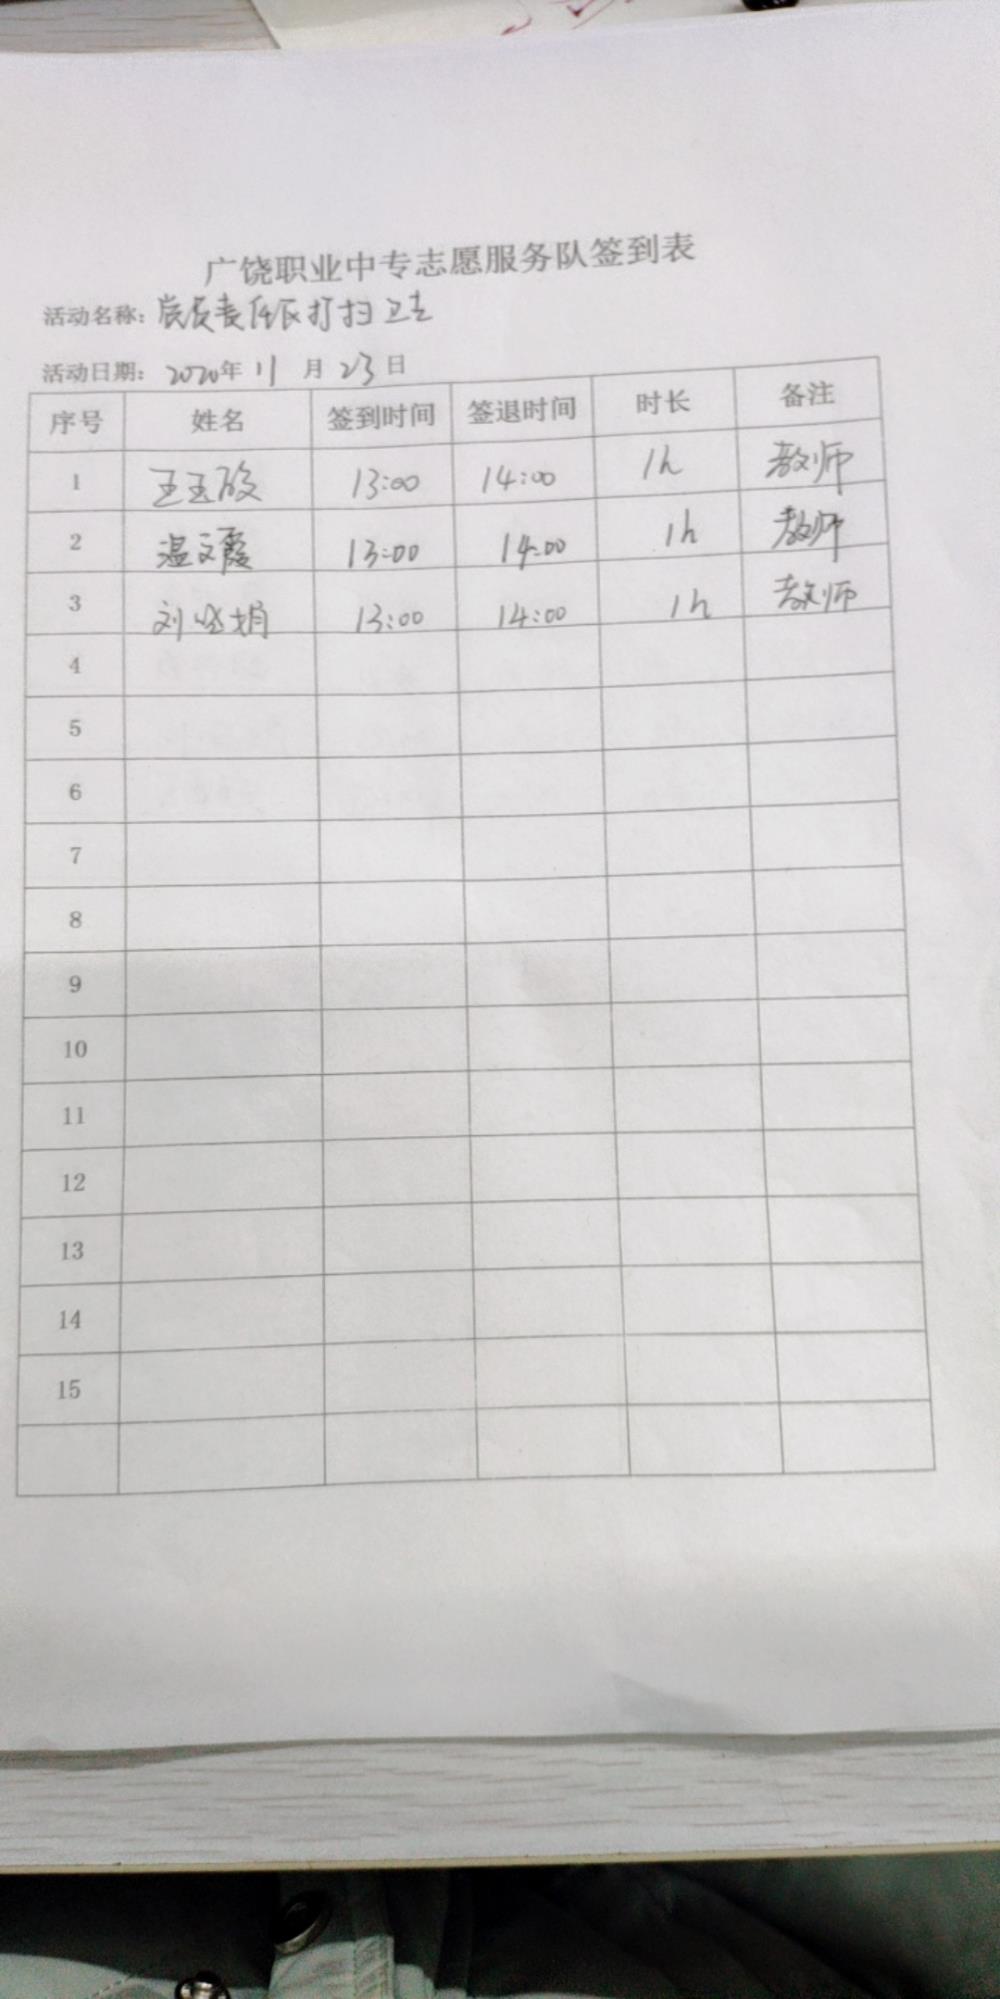 广饶职业中专志愿服务队签到表
活动名称：党员责任区打扫卫生
活动日期：2020年11月23日
序号 姓名 签到时间 签退时间 时长 备注
1 王玉 13:00 14:00 1h 教师
2 温文霞 13:00 14:00 1h 教师
3 刘晓娟 13:00 14:00 1h 教师
4
5
6
7
8
9
10
11
12
13
14
15